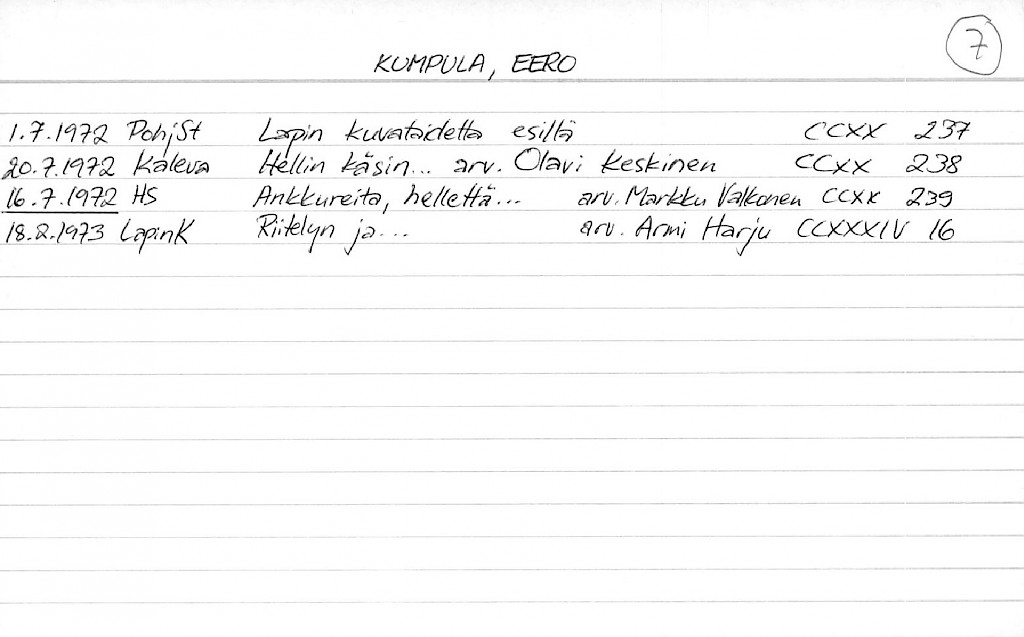 7
KUMPULA, EERO
1.7.1972 PohjSt Lapin kuvataidetta esillä CCXX 237
20.7.1972 Kaleva Hellin käsin... arv. Olavi Keskinen CCXX 238
16.7.1972 HS Ankkureita, hellettä... arv. Markku Valkonen CCXX 239
18.2.1973 LapinK Riitelyn ja... arv. Armi Harju CCXXXIV 16